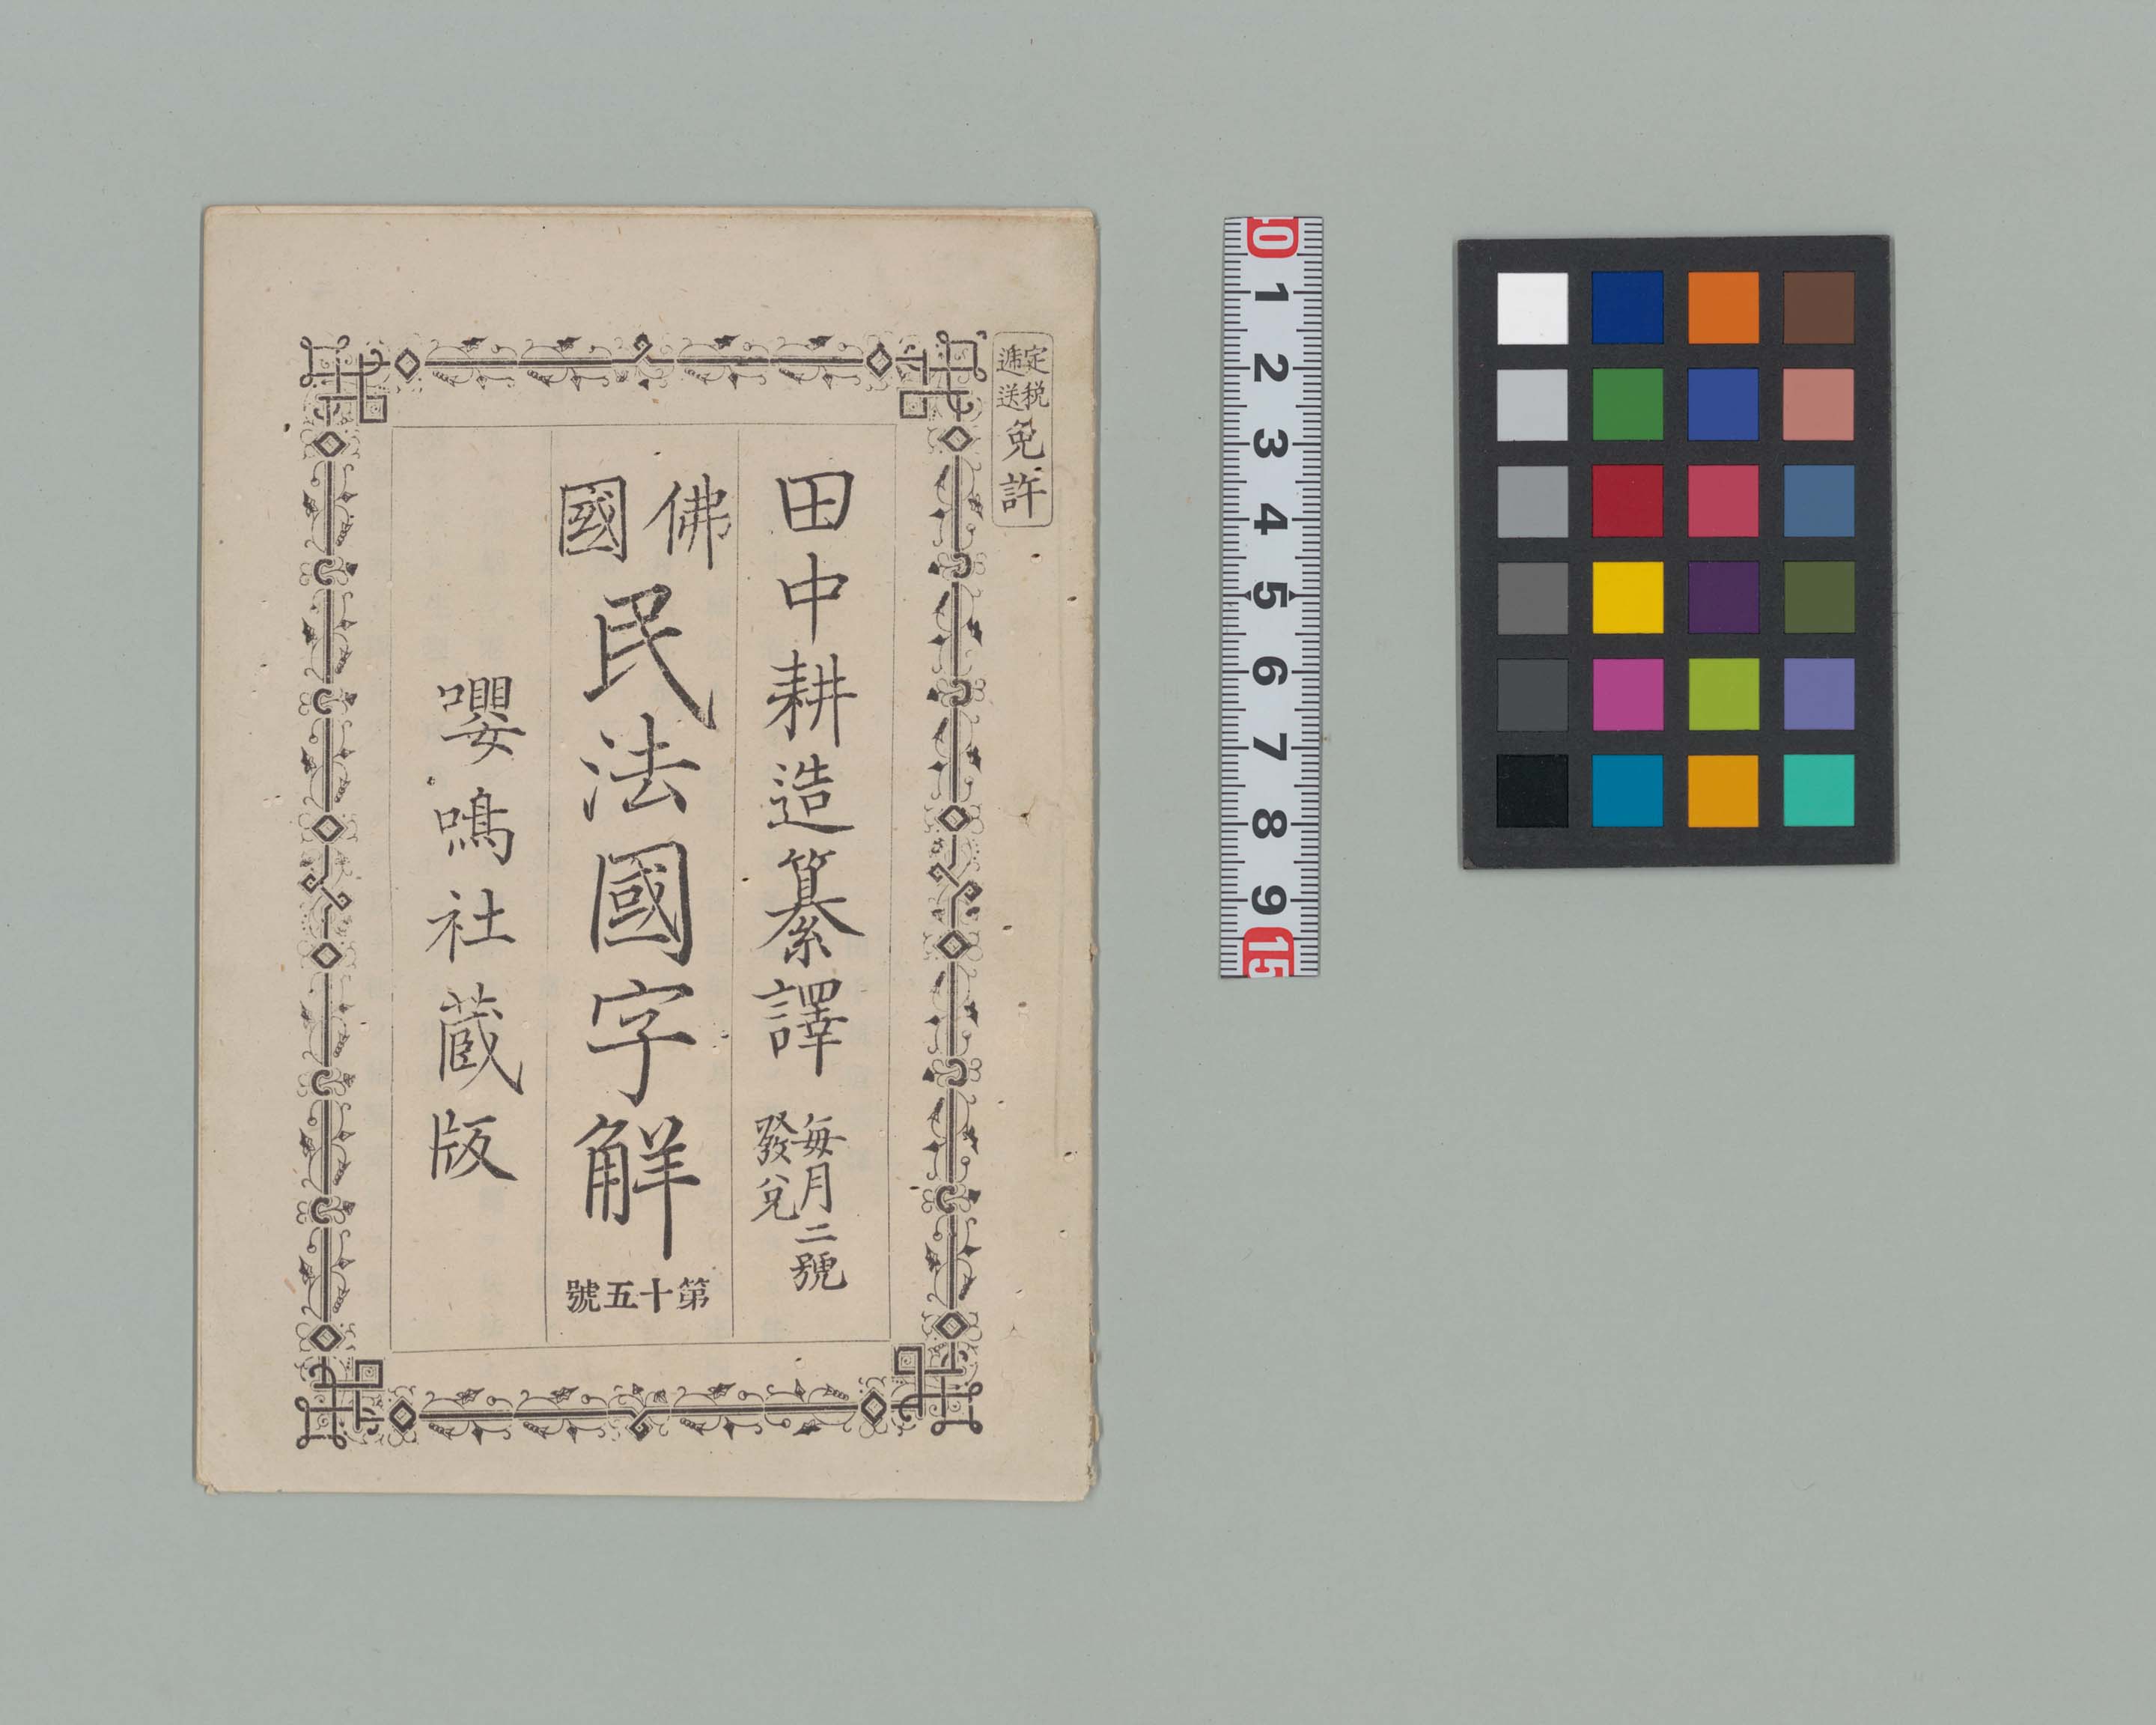 定税
遞送
免許
田中耕造纂譯
毎月二號
發兌
佛國
民法國字解
第十五號
嚶鳴社蔵版
10 1 2 3 4 5 6 7 8 9 15